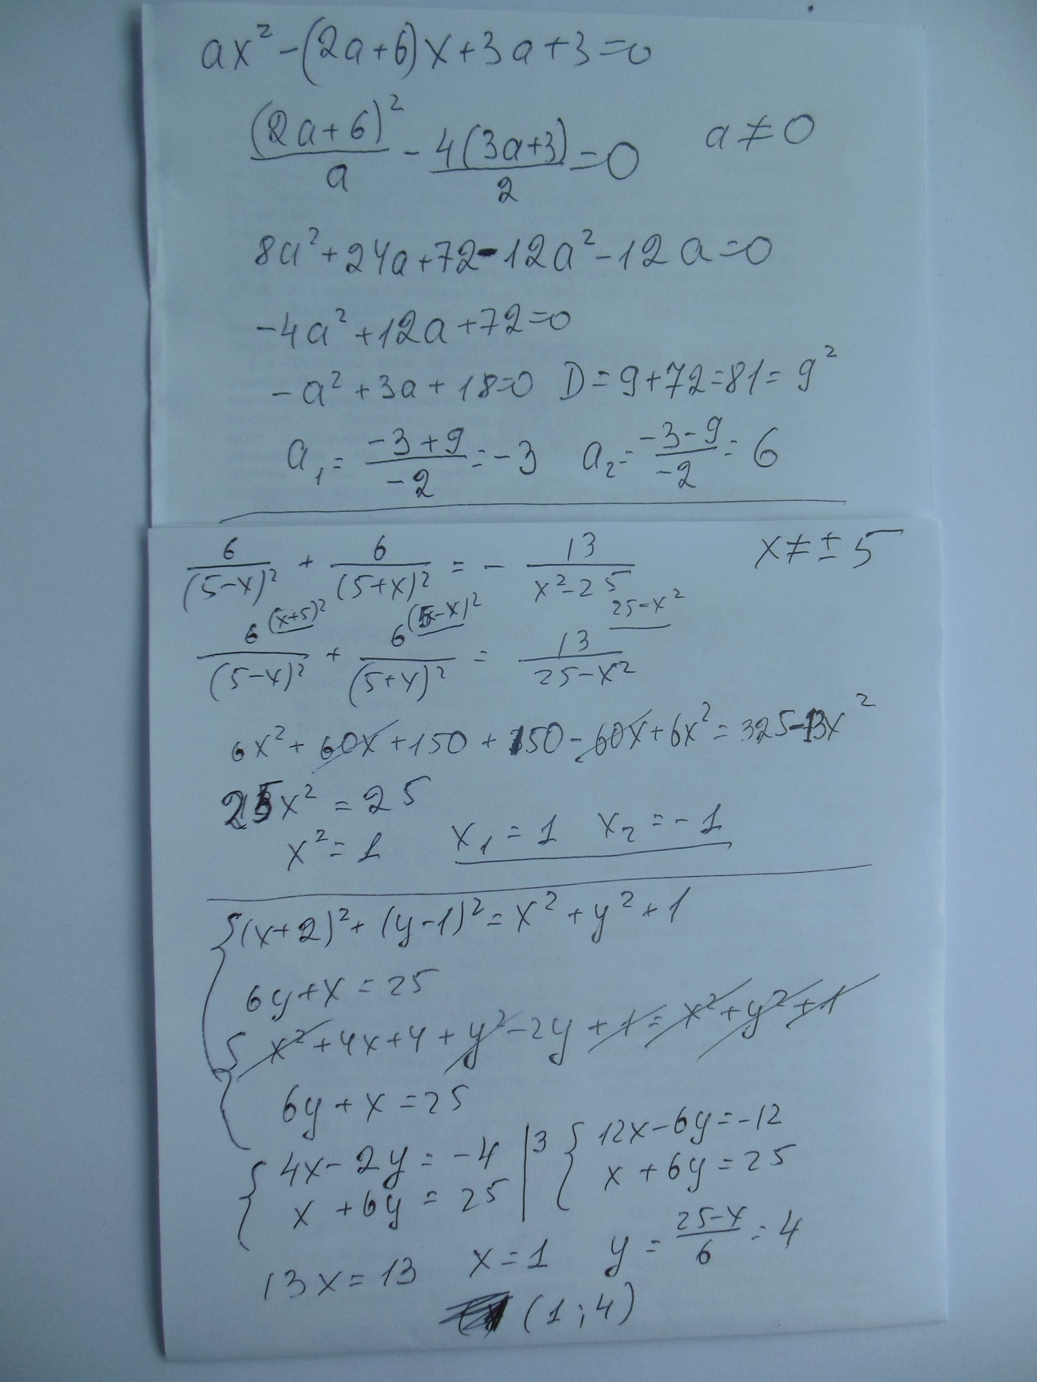 ax² - (2a+6)x + 3a + 3 = 0
(2a+6)²/a - 4(3a+3)/2 = 0 a ≠ 0
8a² + 24a + 72 - 12a² - 12a = 0
-4a² + 12a + 72 = 0
-a² + 3a + 18 = 0 D = 9 + 72 = 81 = 9²
a₁ = (-3+9)/-2 = -3 a₂ = (-3-9)/-2 = 6
6/(5-x)² + 6/(5+x)² = - 13/(x²-25) x ≠ ± 5
6 (x+5)²/(5-x)² + 6 (5-x)²/(5+x)² = 13 25-x²/(25-x²)
6x² + 60x + 150 + 150 - 60x + 6x² = 325 - 13x²
25x² = 25
x² = 1 x₁ = 1 x₂ = -1
{(x+2)² + (y-1)² = x² + y² + 1
6y + x = 25
{ x² + 4x + 4 + y² - 2y + 1 = x² + y² + 1
6y + x = 25
{ 4x - 2y = -4 | 3 { 12x - 6y = -12
x + 6y = 25 | x + 6y = 25
13x = 13 x = 1 y = (25-x)/6 = 4
(1 ; 4)